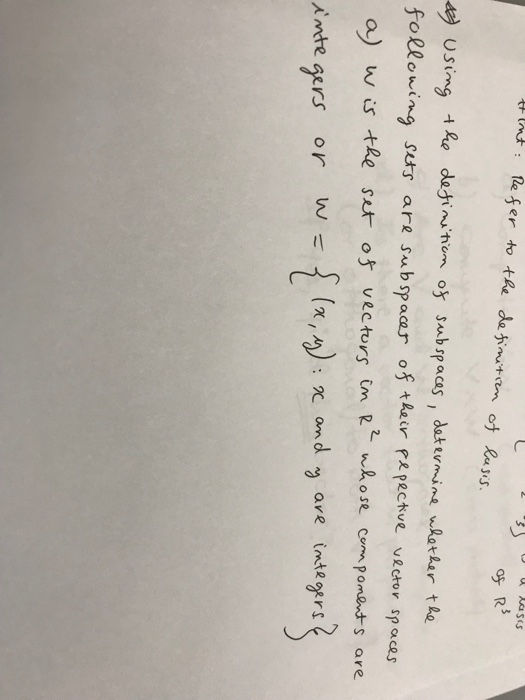 Hint: Refer to the definition of basis.
is a basis of R³
Using the definition of subspaces, determine whether the
following sets are subspaces of their repective vector spaces
a) W is the set of vectors in R² whose components are
integers or W = { (x, y) : x and y are integers }